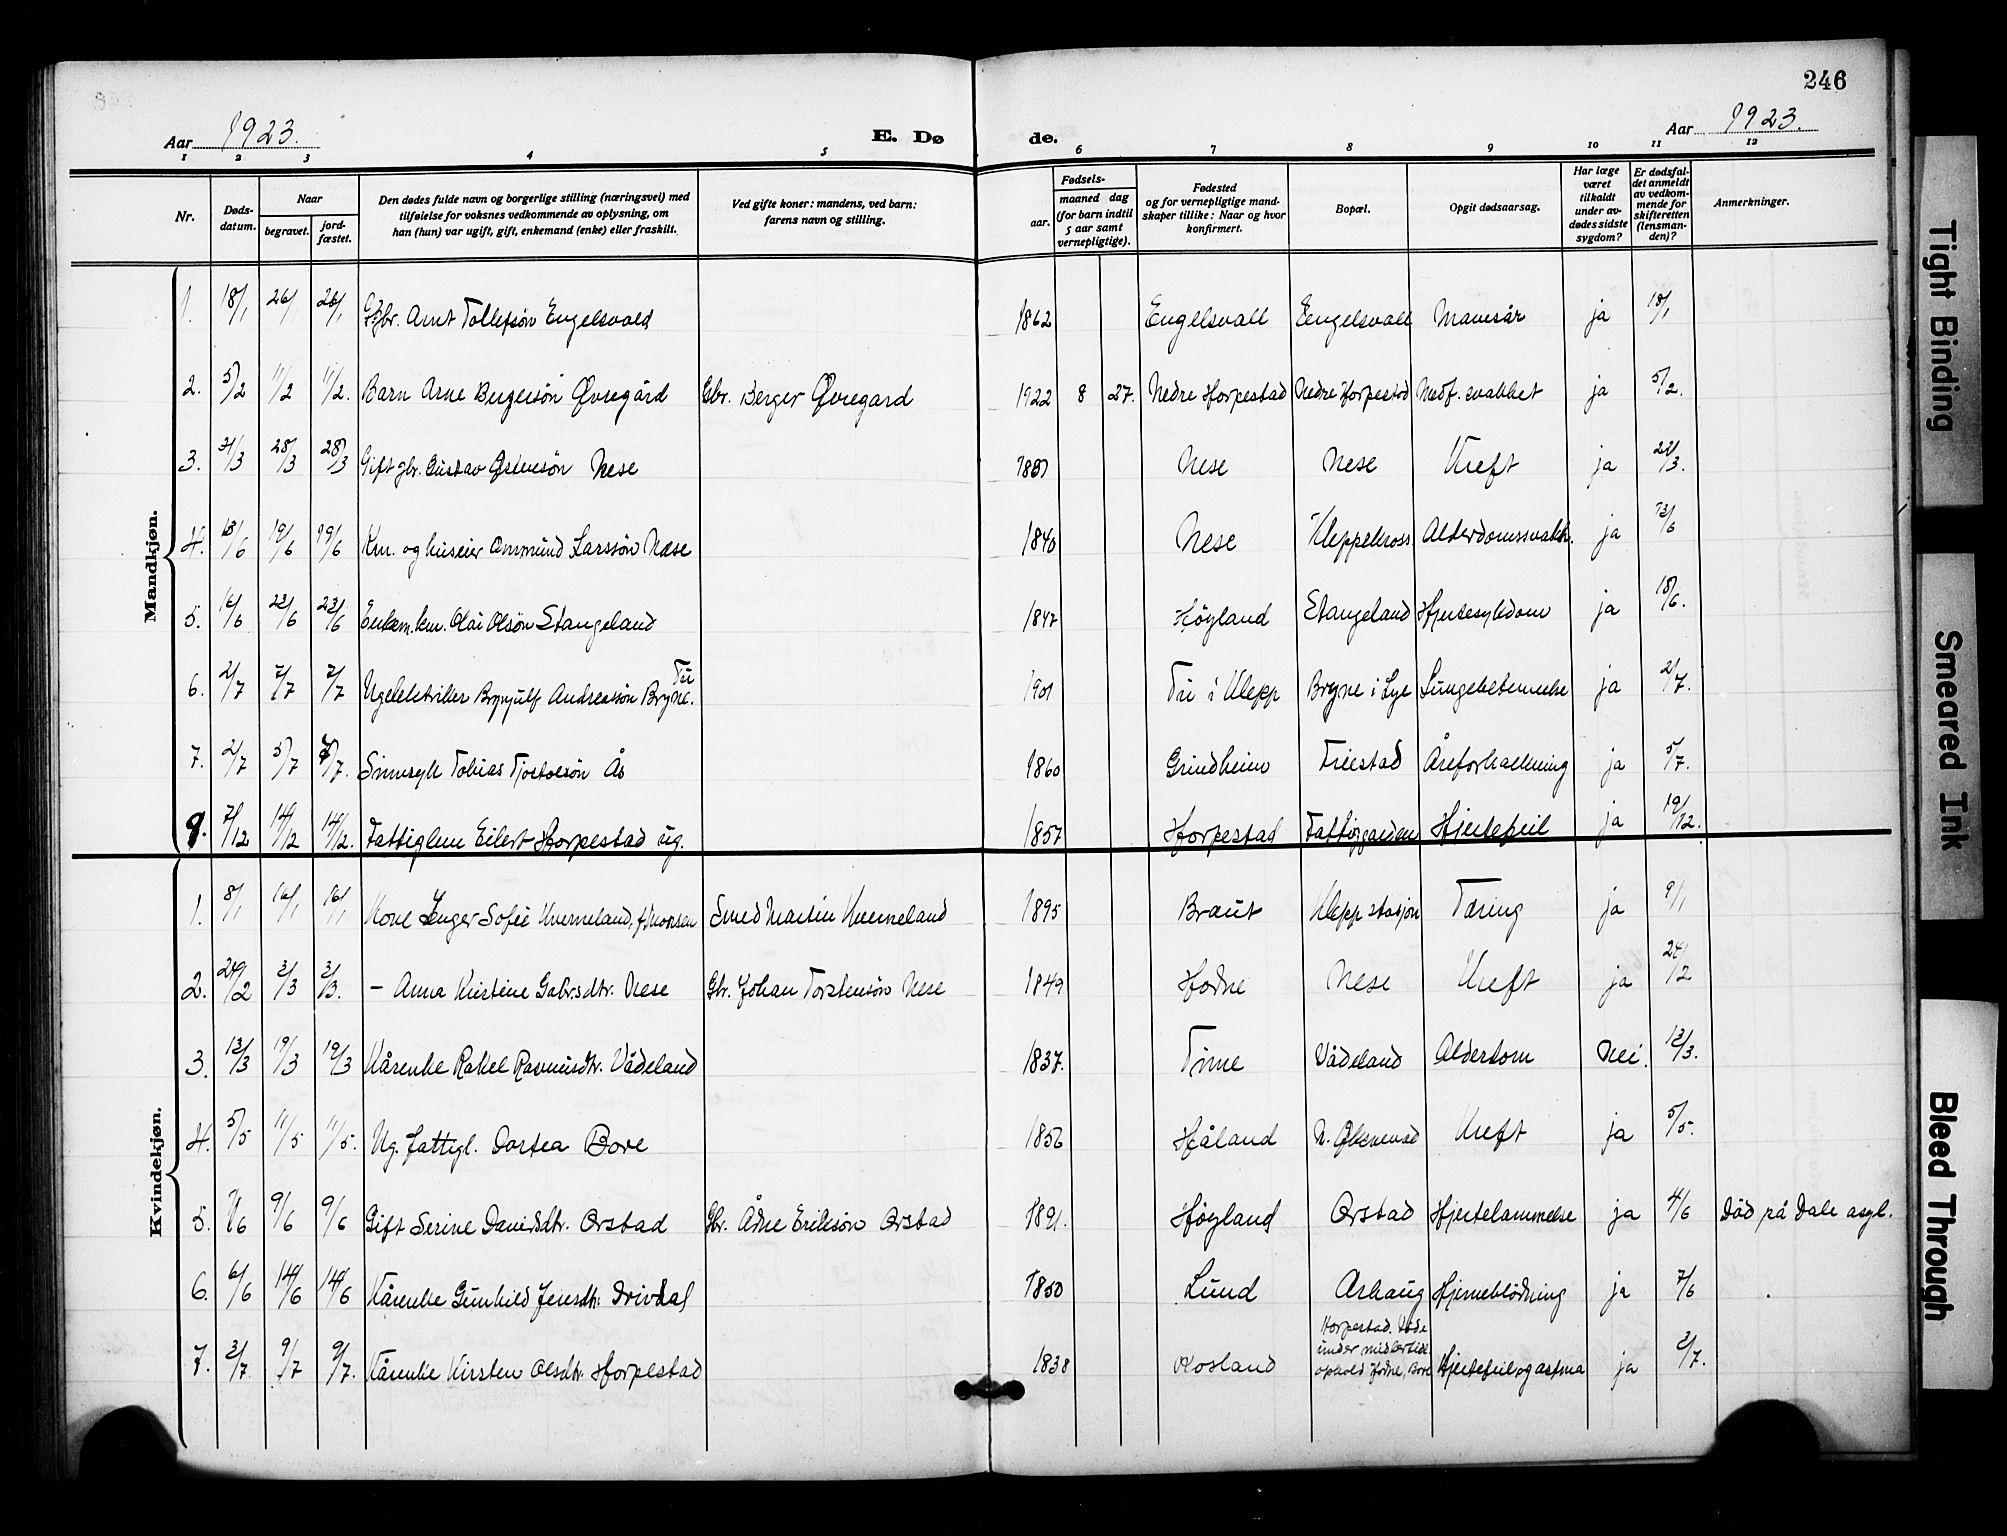 246
Aar 1923. E. Dø de. Aar 1923.
1 2 3 4 5 6 7 8 9 10 11 12
Nr.
Døds-
datum.
Naar
begravet.
jord-
fæstet.
Den dødes fulde navn og borgerlige stilling (næringsvei) med
tilføielse for voksnes vedkommende av oplysning, om
han (hun) var ugift, gift, enkemand (enke) eller fraskilt.
Ved gifte koner: mandens, ved barn:
farens navn og stilling.
Fødsels-
aar.
maaned dag
(for barn indtil
5 aar samt
vernepligtige).
Fødested
og for vernepligtige mand-
skaper tillike: Naar og hvor
konfirmert.
Bopæl.
Opgit dødsaarsag.
Har læge
været
tilkaldt
under av-
dødes sidste
sygdom?
Er dødsfal-
det anmeldt
av vedkom-
mende for
skifteretten
(lensman-
den)?
Anmerkninger.
Mandkjøn.
1. 18/1 26/1 26/1 Gbr. Arnt Tollefsøn Engelsvold 1862 Engelsvoll Engelsvoll Mavesår ja 18/1
2. 5/2 11/2 11/2. Barn Arne Bergersøn Øvregård Gbr. Berger Øvregard 1922 8 27. Nedre Horpestad Nedre Horpestad Medf. svakhet ja 5/2.
3. 21/3 28/3 28/3 Gift gbr. Gustav Østensøn Nese Nese Nese Kreft ja 22/3.
4. 13/6 19/6 19/6 Km. og huseier Ommund Larssøn Næse 1840 Nese Kleppekross Alderdomssvakh. ja 13/6
5. 16/6 23/6 23/6 Enkem. km. Olai Olsøn Stangeland 1847 Høyland Stangeland Hjertesykdom ja 18/6.
Tu
6. 2/7 7/7 7/7 Ug elektriker Brynjulf Andreassøn Bryne. 1901 Tu i Klepp Bryne i Lye Lungebetennelse ja 2/7.
7. 2/7 5/7 5/7. Sinnsyk Tobias Tjostolsøn Ås 1860 Grindheim Friestad Åreforkalkning ja 5/7.
9. 7/12 14/12 14/12. Fattiglem Eilert Horpestad ug. 1857 Horpestad Fattiggarden Hjertefeil ja 19/12.
Kvindekjøn.
1. 8/1 16/1 16/1 Kone Inger Sofie Kverneland, f. Knossen Smed Martin Kverneland 1895 Braut Klepp stasjon Tæring ja 9/1
2. 24/2 3/3 3/3. – Anna Kristine Gabr.sdtr. Nese Gbr. Johan Torstensøn Nese 1849 Hodne Nese Kreft ja 24/2
3. 13/3 19/3 19/3 Kårenke Rakel Rasmusdtr. Vådeland 1837. Time Vådeland Alderdom Nei. 13/3.
4. 5/5 11/5 11/5. Ug. fattigl. Dortea Bore 1856 Håland N. Øksnevad Kreft ja 5/5.
5. 1/6 9/6 9/6 Gift Serine Davidsdtr. Orstad Gbr. Ådne Eriksøn Orstad 1891. Høyland Orstad Hjertelammelse ja 4/6 Död på Dale asyl.
6. 6/6 14/6 14/6 Kårenke Gunhild Jensdtr. Drivdal 1850 Lund Arhaug Hjerneblødning ja 7/6
Horpestad. Døde
under midlertidl.
ophold Hodne, Bore
7. 3/7 9/7 9/7. Kårenke Kirsten Olsdtr. Horpestad 1838 Rosland Hjertefeil og astma ja 3/7.
Tight Binding
Smeared Ink
Bleed Through